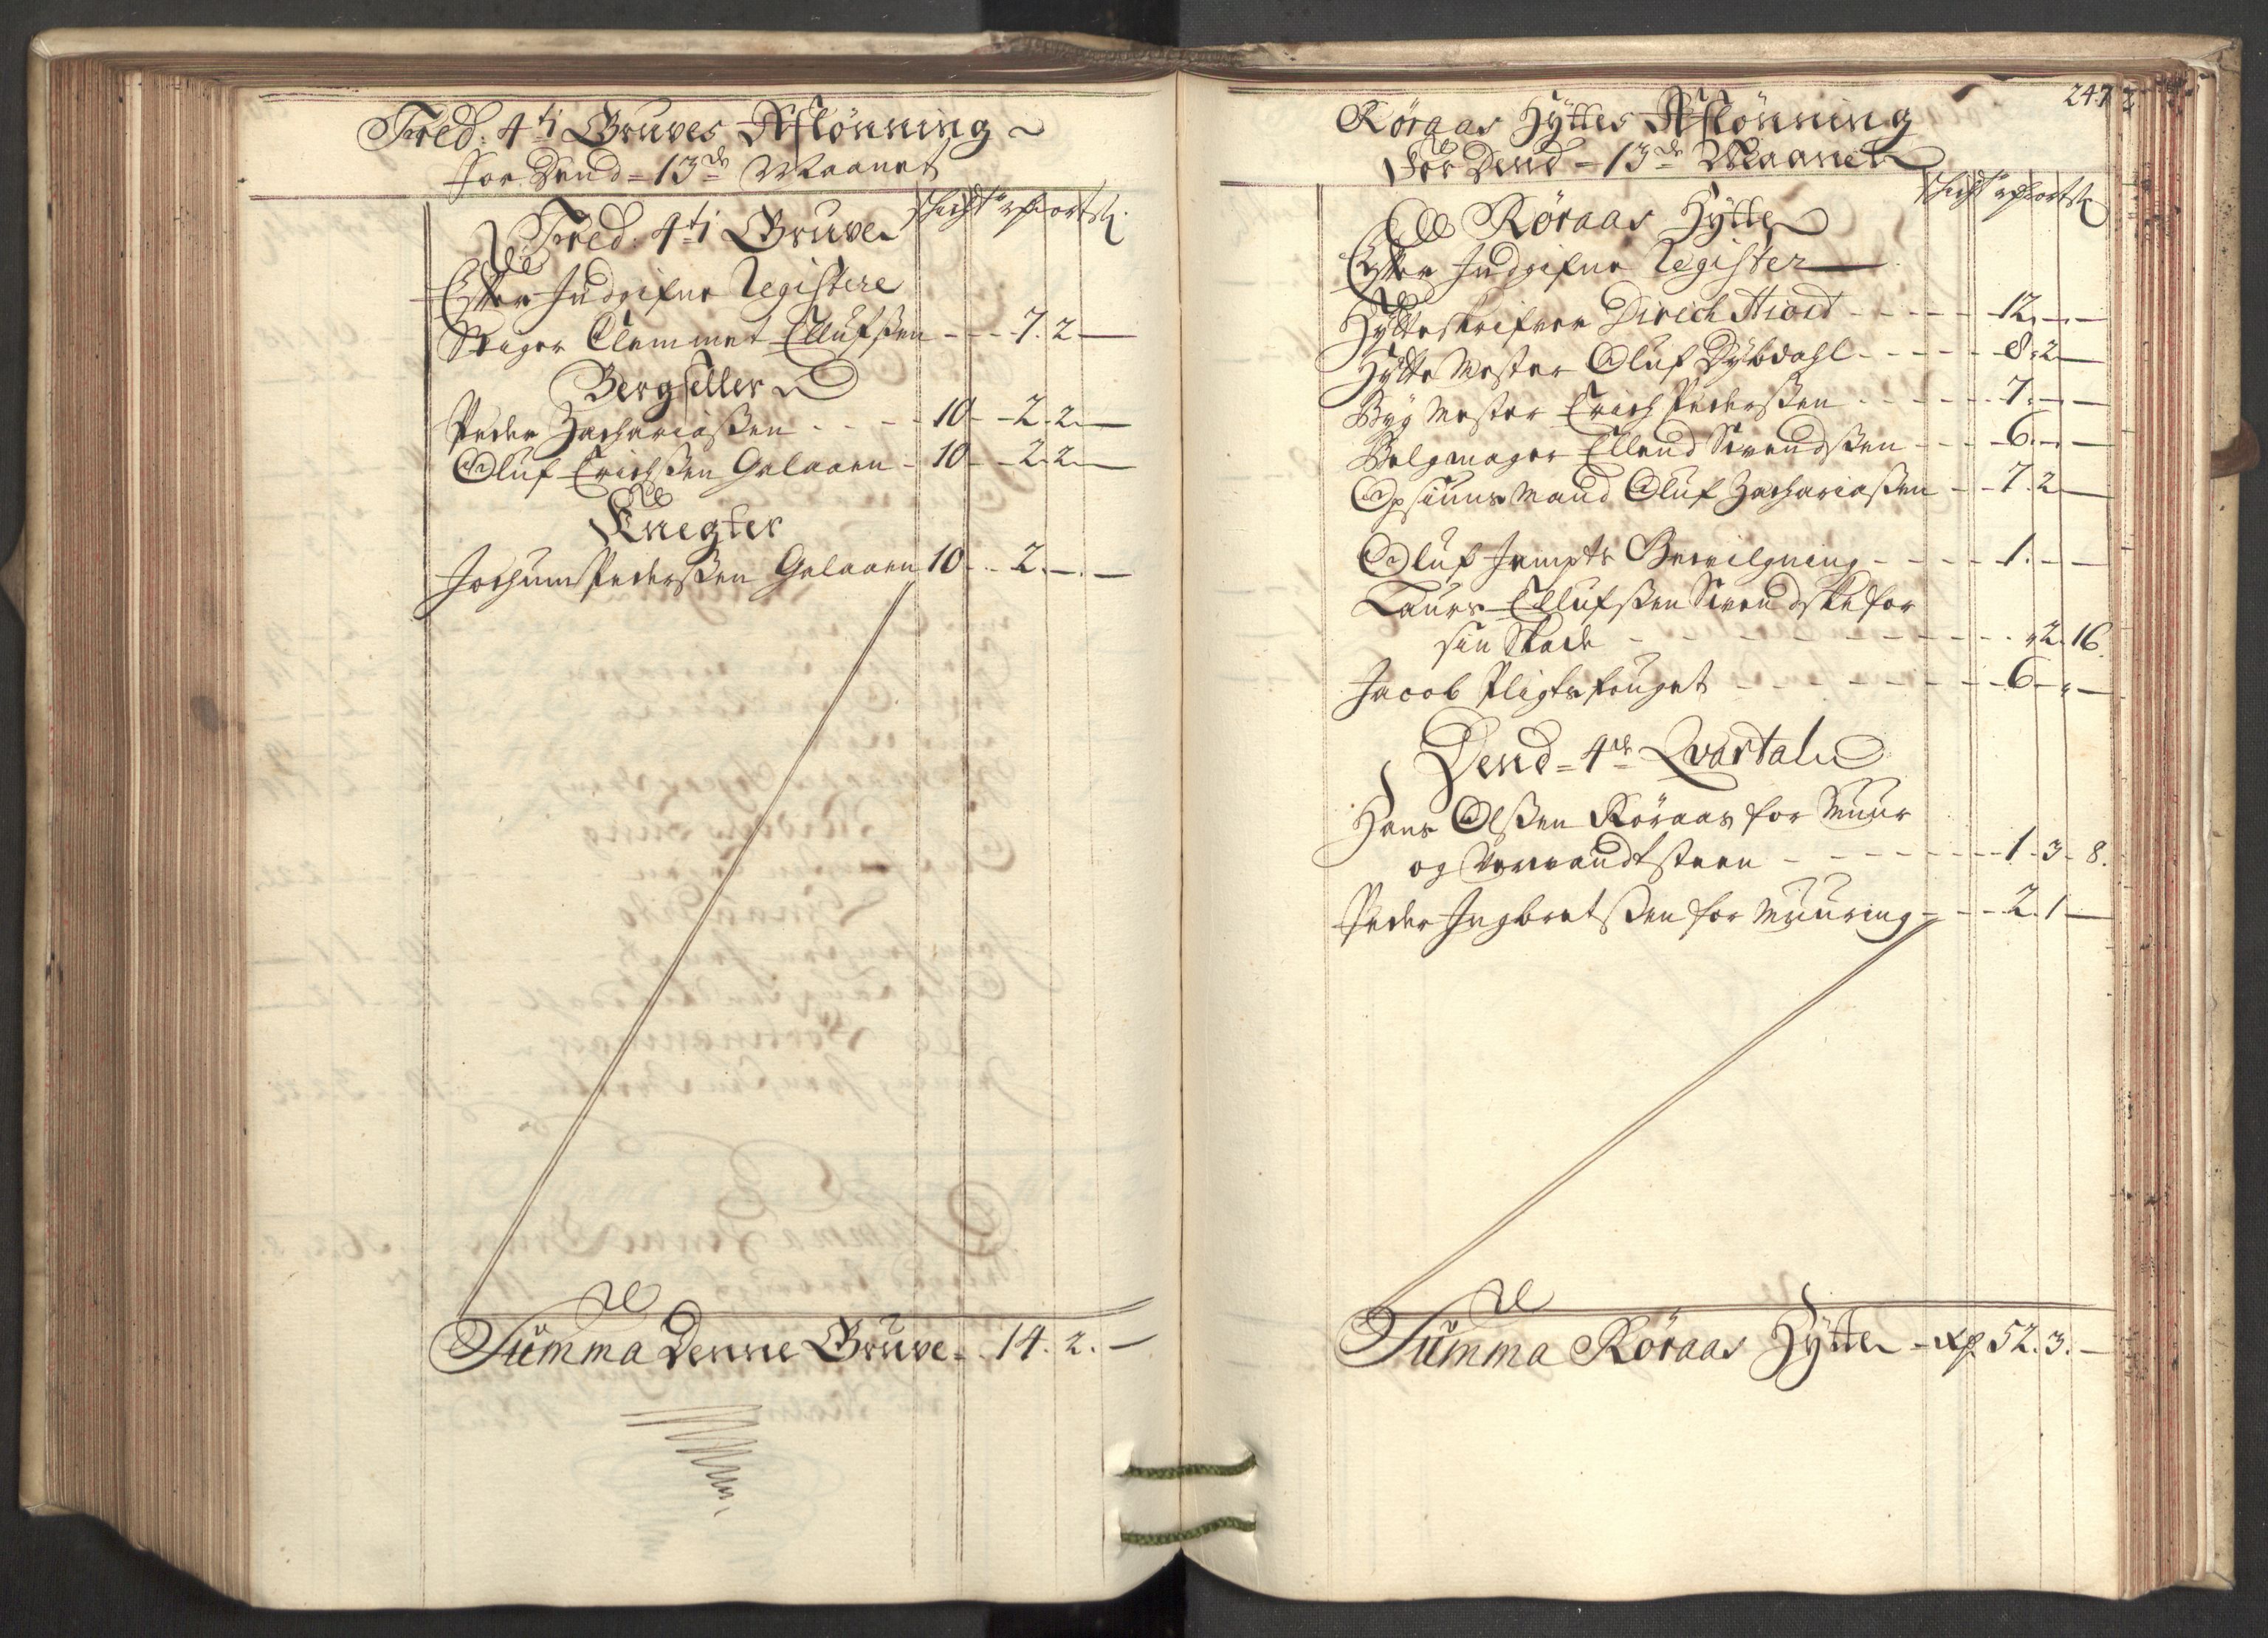 Fred: 4ti Gruves Afslönning
for Dend = 13de Maanet
Schicht rdr ort sk
Fred: 4ti Gruve
Efter Indgifne Registere
Stiger Clemmet Ellufsen - - - 7. 2 —
Bergseller
Peder Zachariaßen - - - 10 - - 2. 2. —
Oluf Erichsen Galaaen - 10 - - 2. 2. —
Knegter
Jochum Pederßen Galaaen 10 - - 2. — . —
Summa Denne Gruve - 14. 2. —
247
Röraas Hyttes Afslönning
For Dend = 13de Maanet
Schicht rdr ort sk
Röraas Hytte
Efter Indgifne Register
Hytteskrifver Dirich Hiort - - - - - 12. — . —
Hytte Mester Oluf Dybdahl - - - - - 8. 2 —
Byg Mester Erich Pederßen - - - - - 7. — . —
Belgmager Ellend Svendsßen - - - 6. — . —
Opsiuns Mand Oluf Zachariaßen - - 7. 2 —
Oluf Jempts Bevilgning - - - - - 1. — —
Laurs Ellufsßen Svendske for
sin Skade - - - - - - - - - - - 2. 16.
Jacob Pligtsfouget - - - - - - - - 6 — . —
Dend = 4de Qvartal
Hans Olßen Röraas for Muur
og steen - - - - - - - - 1 - 3 - 8.
Peder Ingbretßen for Muuring - - - 2. 1 —
Summa Röraas Hytte - rdr 52. 3. —